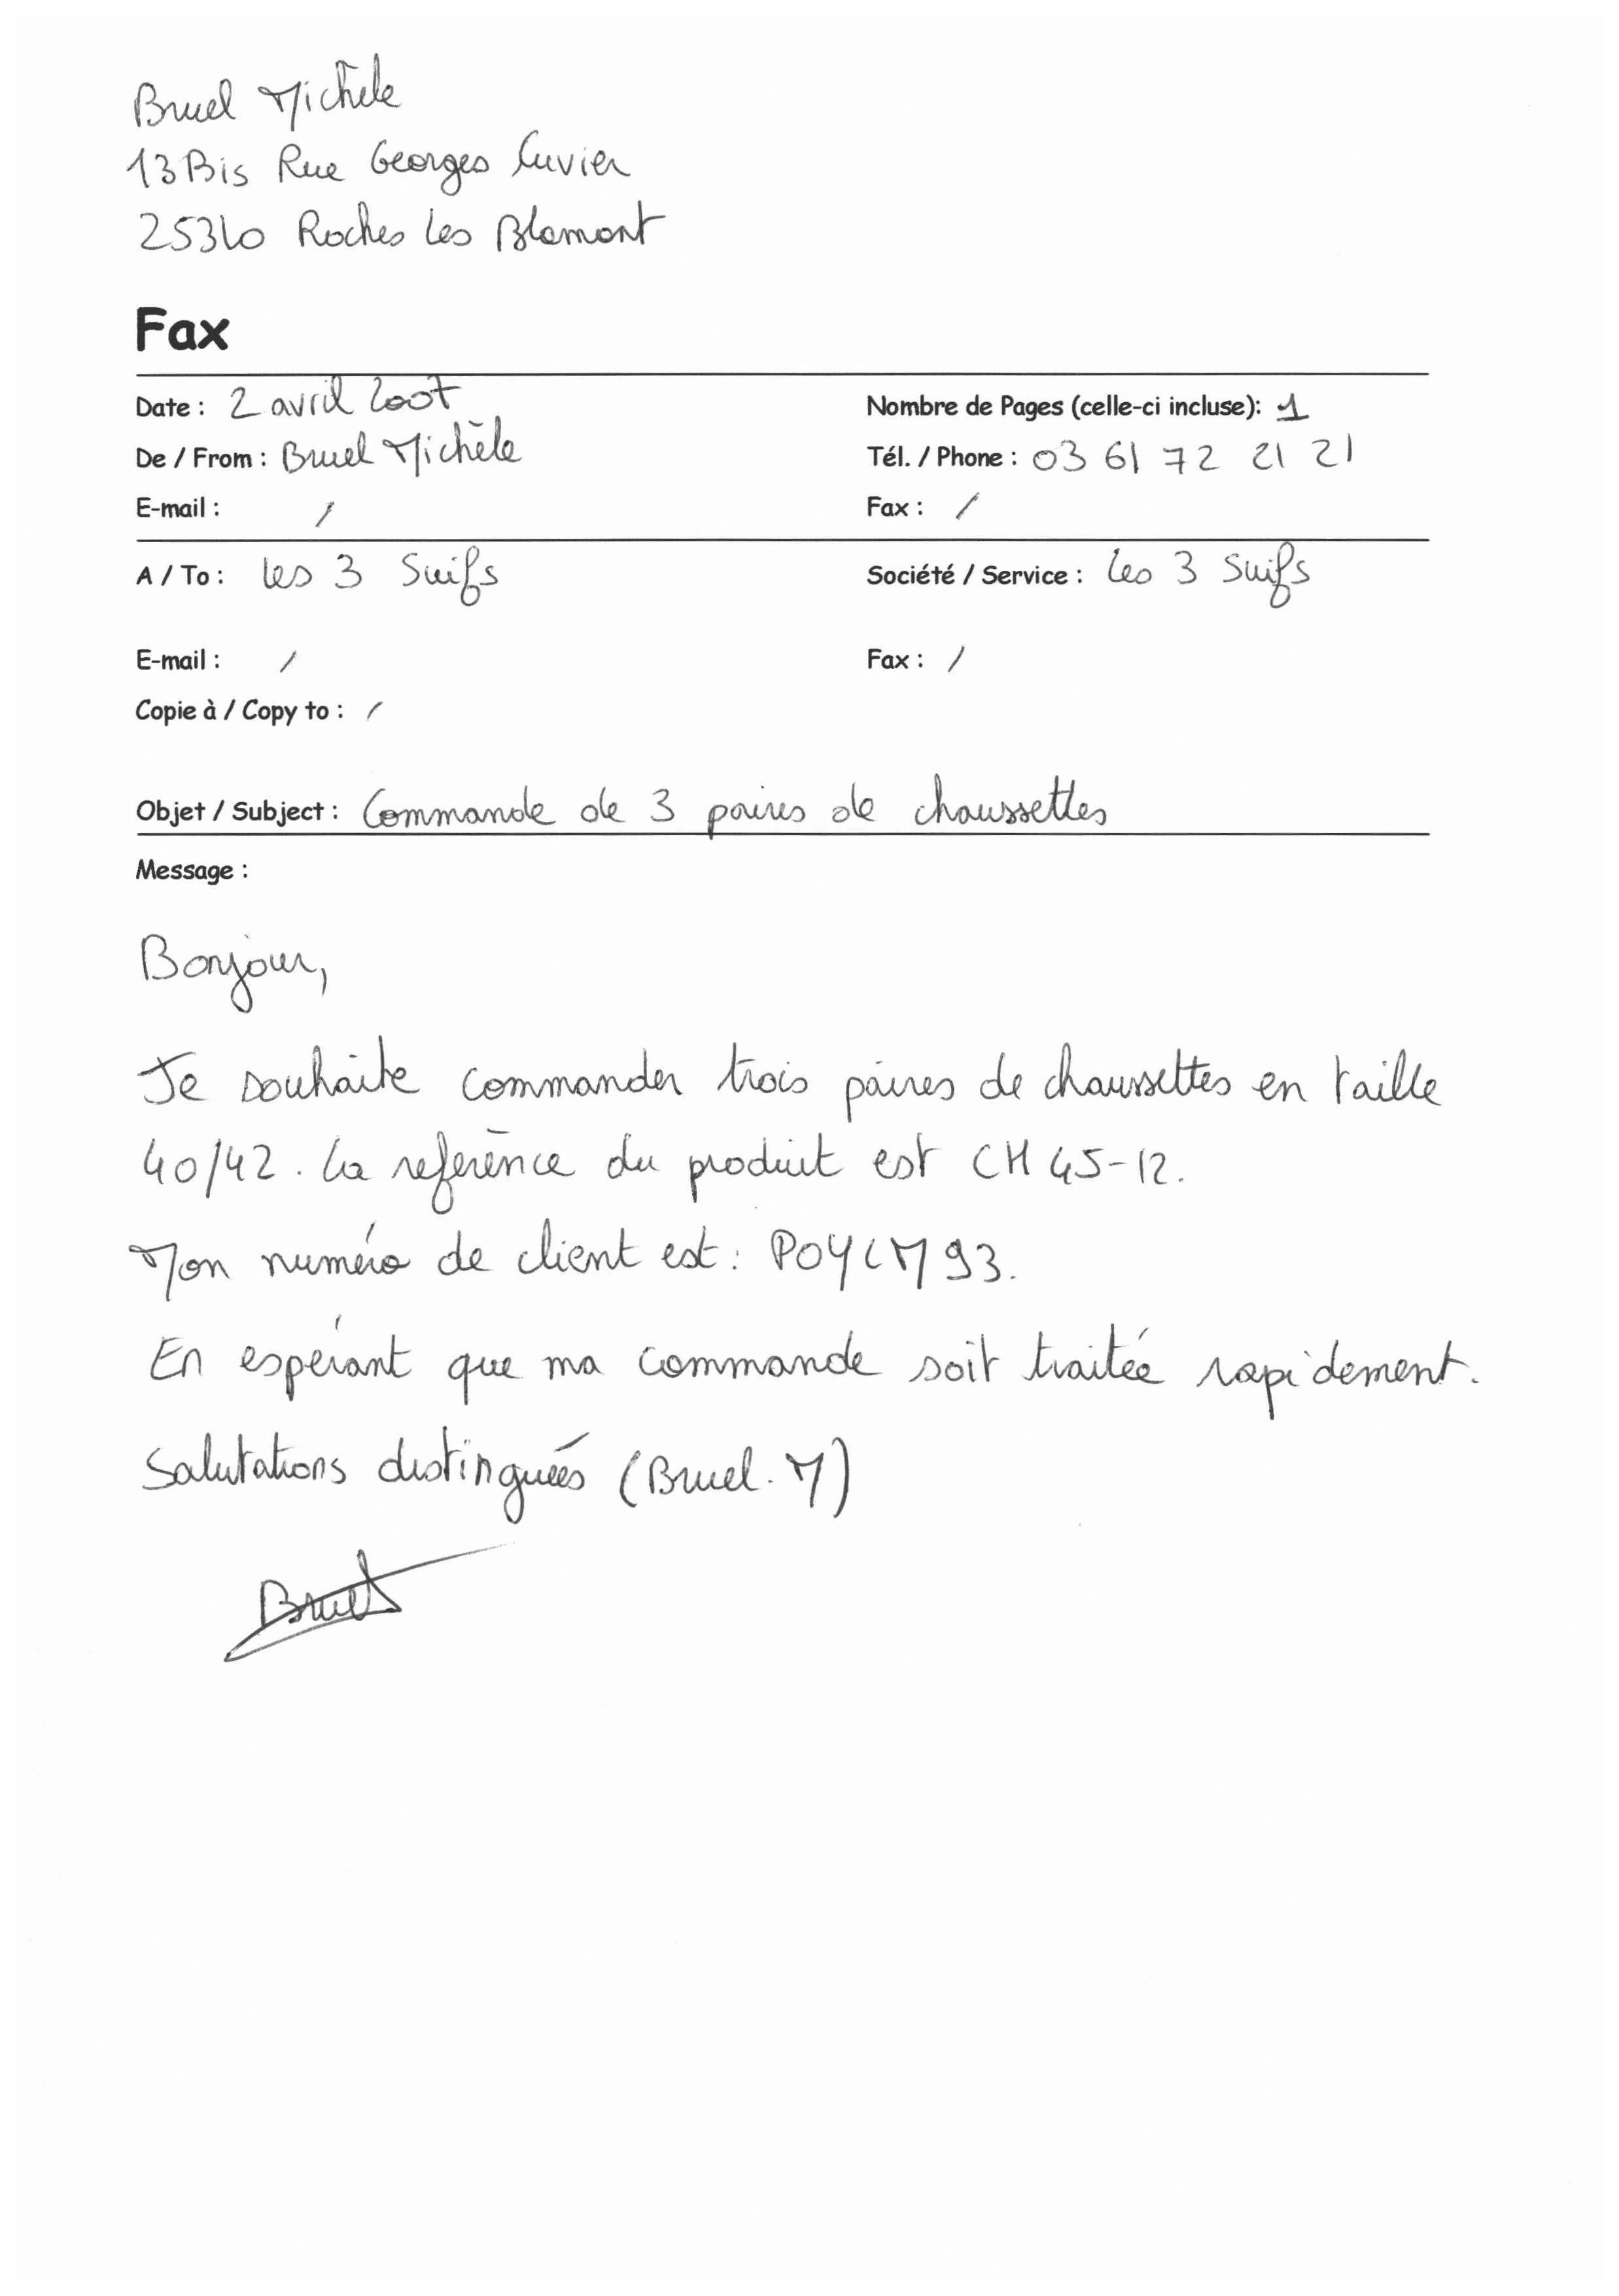 Bruel Michèle
13Bis Rue Georges Cuvier
25340 Roches Les Blamont
Fax
Date : 2 avril 2007 Nombre de Pages (celle-ci incluse): 1
De / From : Bruel Michèle Tél. / Phone : 03 61 72 21 21
E-mail : / Fax : /
A / To : Les 3 Suifs Société / Service : Les 3 Suifs
E-mail : / Fax : /
Copie à / Copy to : /
Objet / Subject : Commande de 3 paires de chaussettes
Message :
Bonjour,
Je souhaite commander trois paires de chaussettes en taille
40/42. La référence du produit est CH 45-12.
Mon numéro de client est : POYCM93.
En espérant que ma commande soit traitée rapidement.
Salutations distinguées (Bruel. M)
Bruel